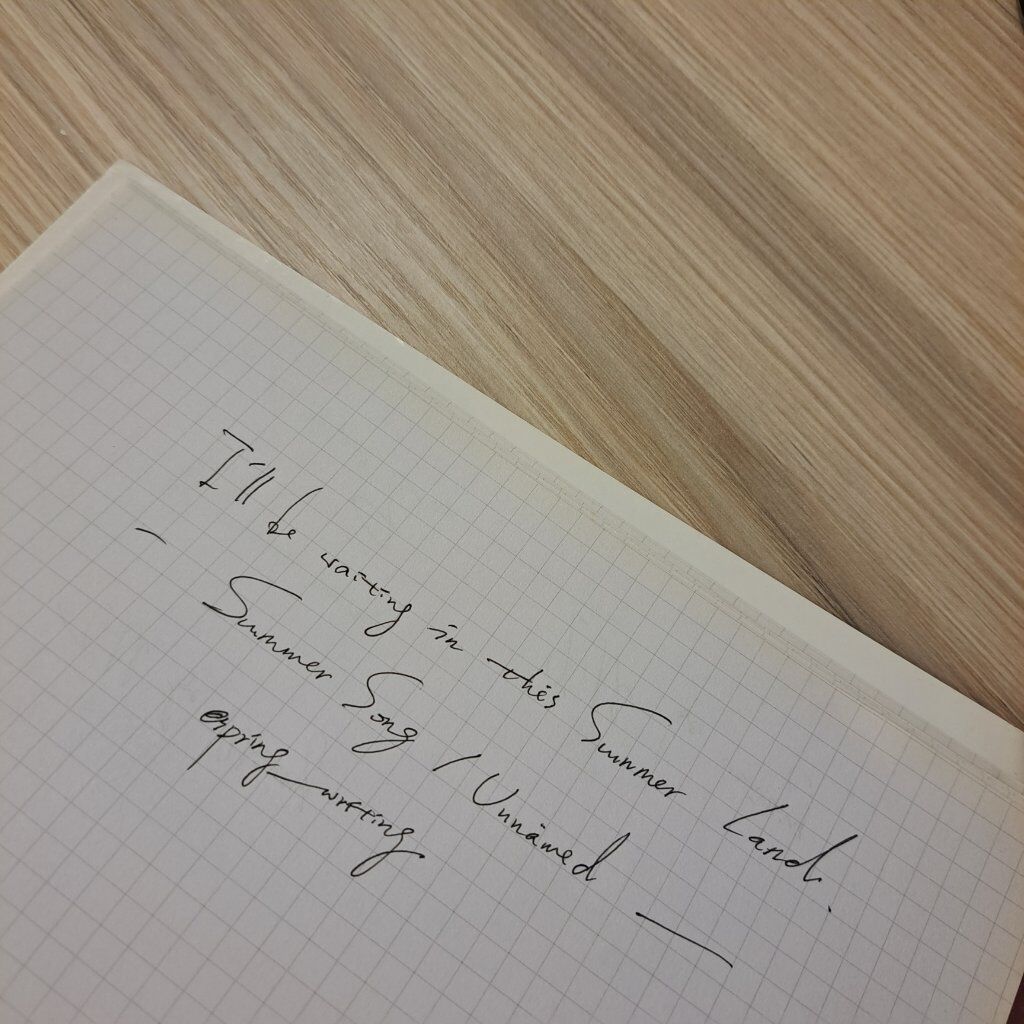 I'll be waiting in this Summer Land.
– Summer Song / Unnämed —
@spring_writing